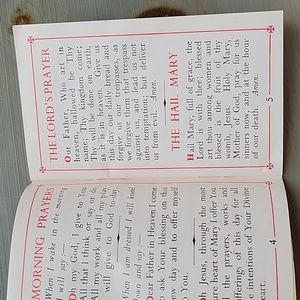 MORNING PRAYERS
When I wake in the morning
I will say:—
Oh my God, I give to You
All that I think or say or do
All my work and all my play
I will give to God to-day.
When I am dressed I will kneel
down and say:—
Dear Father in Heaven I come
to ask Your blessing on this
new day and to offer myself
to You.
Oh Jesus, through the most
pure heart of Mary I offer You
the prayers, works and
sufferings of this day for all
the intentions of Your Divine
4
THE LORD'S PRAYER
Our Father, Who art in
heaven, hallowed be Thy
name; Thy kingdom come;
Thy will be done on earth,
as it is in heaven. Give us
this day our daily bread and
forgive us our trespasses, as
we forgive them that trespass
against us, and lead us not
into temptation, but deliver
us from evil. Amen.
THE HAIL MARY
Hail Mary, full of grace, the
Lord is with thee; blessed
art thou among women, and
blessed is the fruit of thy
womb, Jesus. Holy Mary,
Mother of God, pray for us
sinners now, and at the hour
of our death. Amen.
5